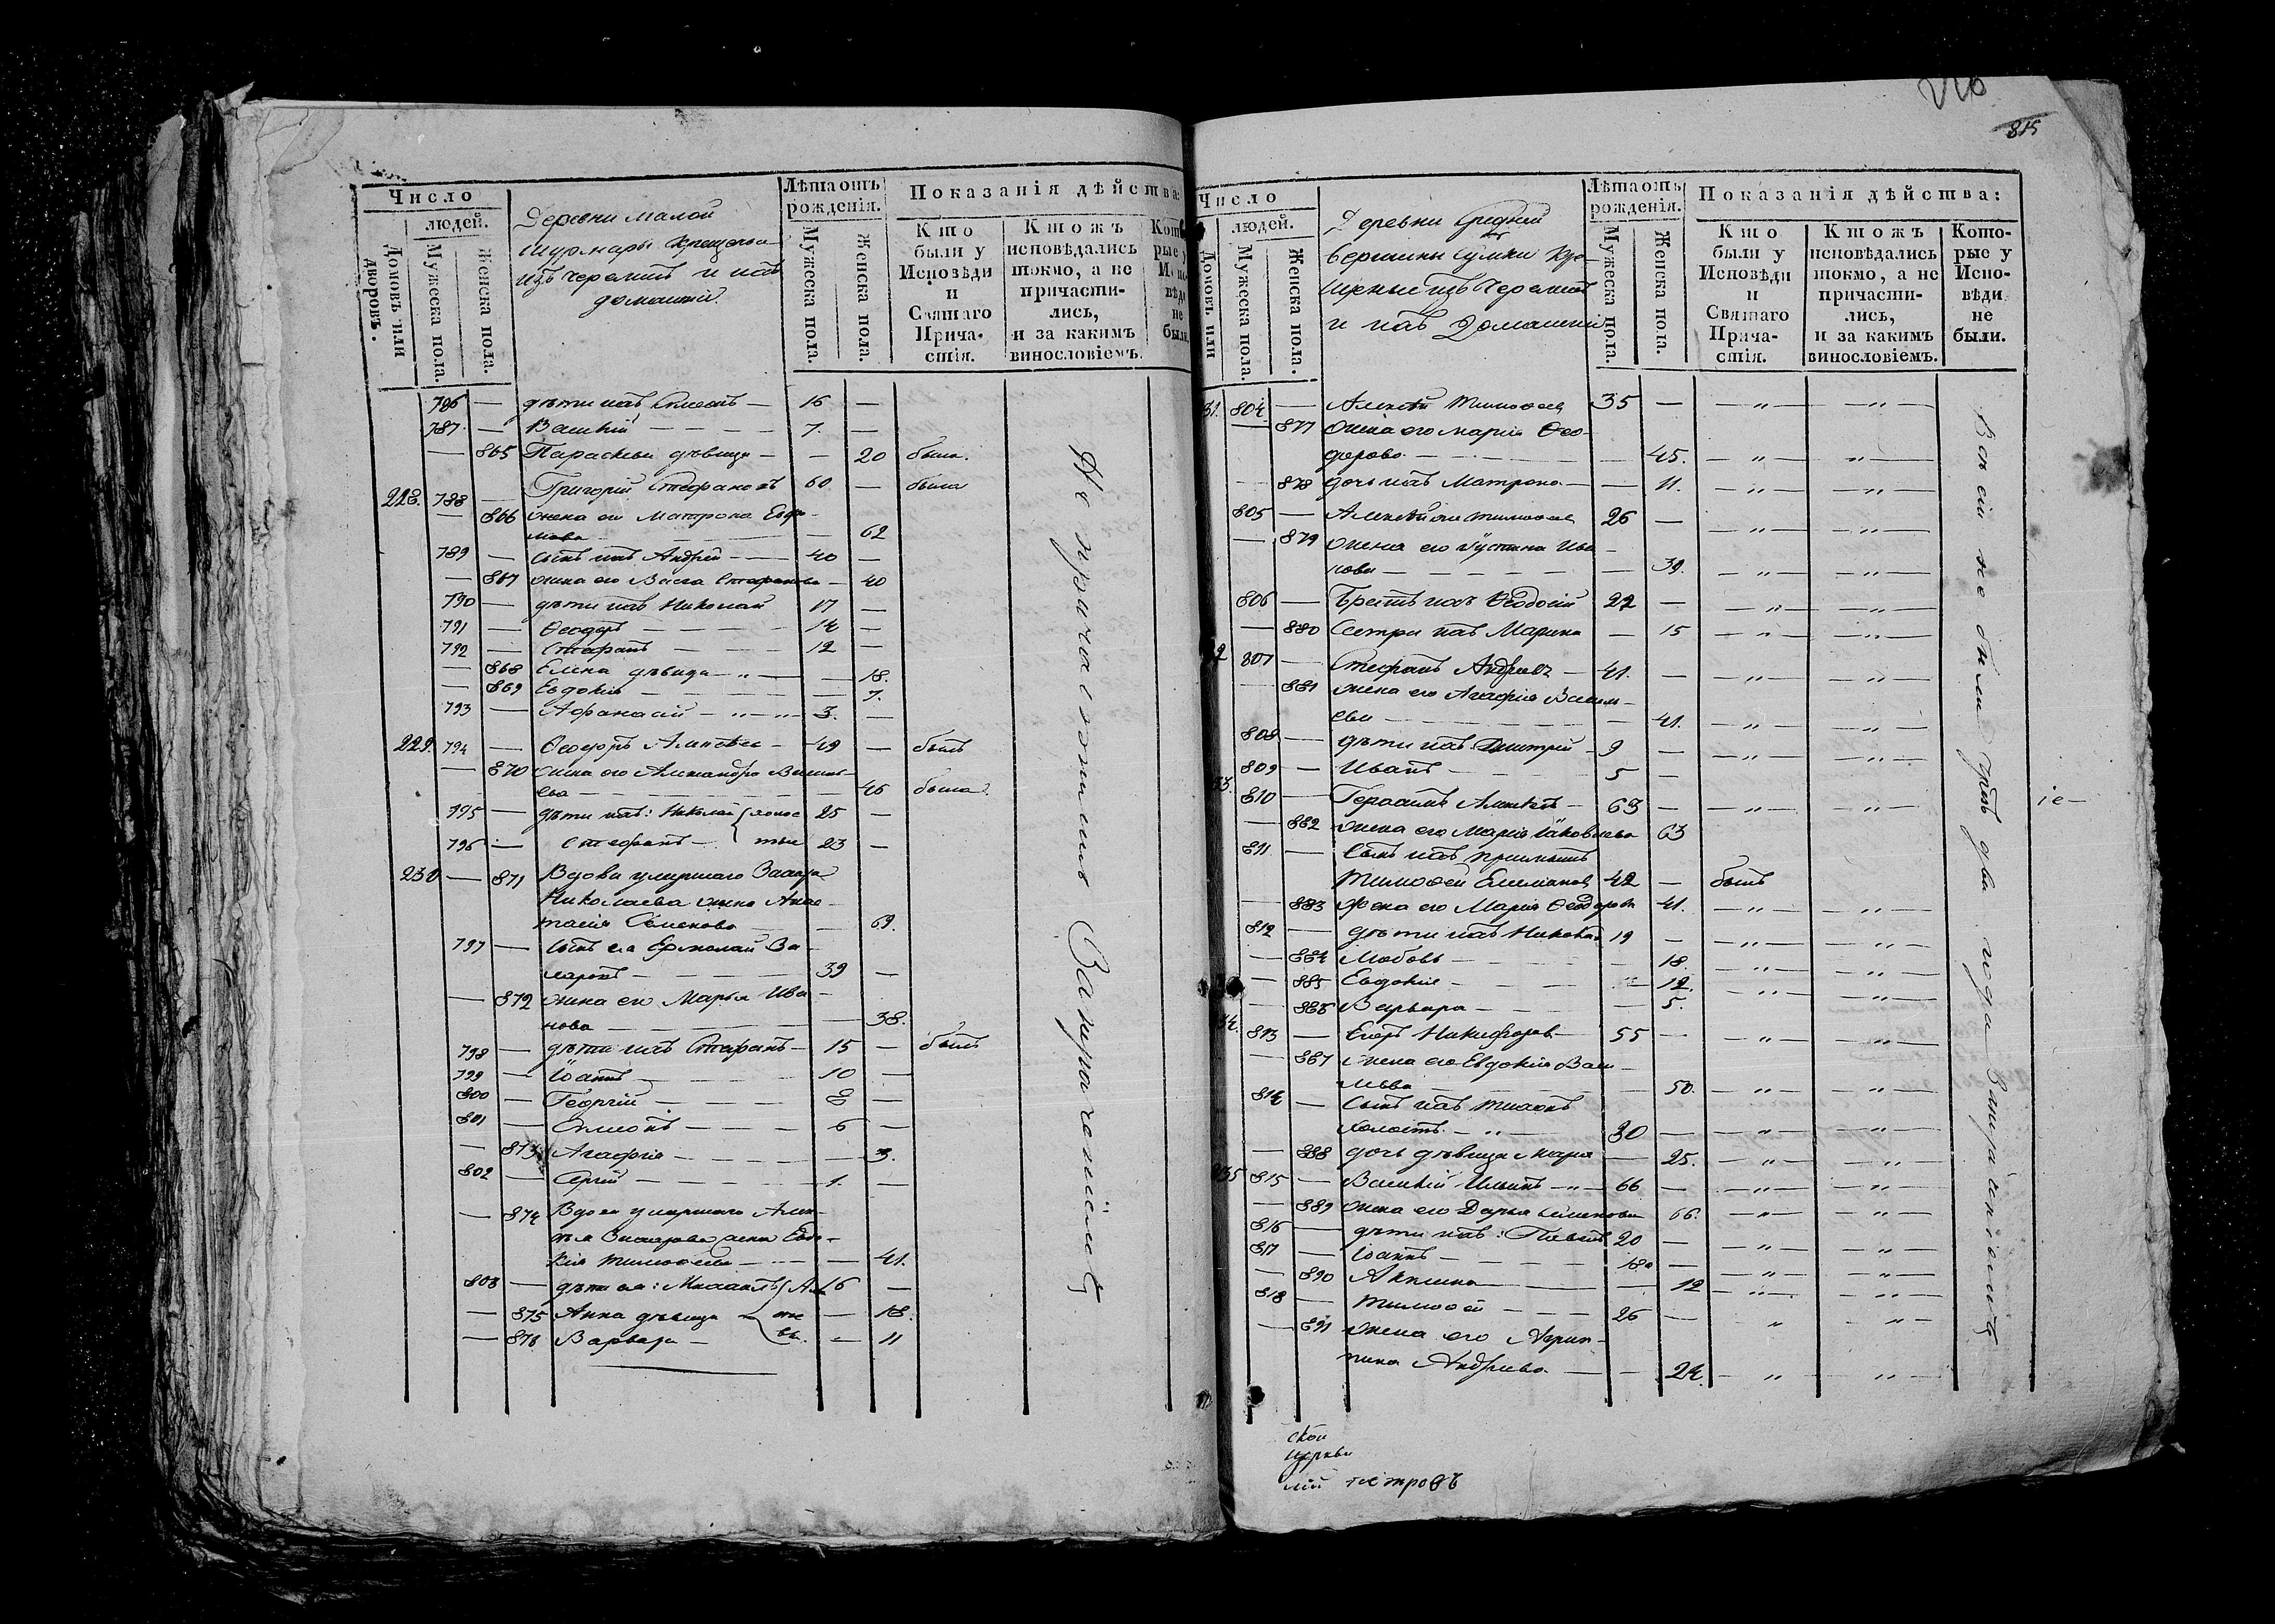 815
Число
людей.
Домовъ или дворовъ.
Мужеска пола.
Женска пола.
Деревни Малой
Шурмары Крещеные
изъ черемисъ и ихъ
домашніи
Лѣта отъ рожденія.
Мужеска пола.
Женска пола.
Показанія дѣйства:
Кто были у Исповѣди и Святаго Причастія.
Ктожъ исповѣдались токмо, а не причастились, и за какимъ винословіемъ.
786 — дѣти ихъ Симеонъ — 16 —
787. — Василій — 7. —
— 865 Параскевія дѣвица — — 20 была.
228. 788 — Григорій Стефановъ 60 — былъ
— 866 жена его Матрона Ефи-
мова — 62
789 — сынъ ихъ Андрей — 40 —
— 867 жена его Васса Стефанова — 40
790 — дѣти ихъ Николай 17 —
791 — Ѳеодоръ — 14 —
792 — Стефанъ — 12 —
— 868 Елена дѣвица — „ — 18.
— 869 Евдокія — 7.
793 — Афанасій — „ — „ 3. —
229. 794 — Ѳеодоръ Алексѣевъ — 49 — былъ
— 870 жена его Александра Василь-
ева — 46 была
795 — дѣти ихъ: Николай холос 25 —
796 — Стефанъ — тые 23 —
230 — 871 Вдова умершаго Захара
Николаева жена Анас-
тасія Семенова — 69.
797 — сынъ ея Ермолай За-
харовъ — 39 —
— 872 жена его Марья Ива-
нова — 38.
798 — дѣти ихъ Стефанъ — 15 — былъ
799 — Іоаннъ — 10 —
800 — Георгій — 8 —
801 — Симеонъ — 6 —
— 873 Агафія — 3.
802 — Сергій — 1. —
— 874 Вдова умершаго Алек-
сѣя Захарова жена Евдо-
кія Тимофеева — 41.
803 — дѣти ея: Михаилъ 16 —
— 875 Анна дѣвица — 18.
— 876 Варвара — 11
Не причастились
Число
людей.
Домовъ или
Мужеска пола.
Женска пола.
Деревни Средней
вершины Сумки Кре-
щеные изъ Черемисъ
и ихъ Домашніи
Лѣта отъ рожденія.
Мужеска пола.
Женска пола.
Показанія дѣйства:
Кто были у Исповѣди и Святаго Причастія.
Ктожъ исповѣдались токмо, а не причастились, и за какимъ винословіемъ.
Которые у Исповѣди не были.
31. 804 — Алексѣй Тимофеевъ 35 — — „ — — „ —
— 877 жена его Марія Ѳео-
дорова — 45. — „ — „ —
— 878 дочь ихъ Матрона — — 11. — „ — — „ —
805 — 26 — — „ — — „ —
— 879 жена его Устина Ива-
нова — 39. — „ — — „ —
806 — Братъ ихъ Ѳеодосій 22 — — „ — — „ —
— 880 Сестра ихъ Марина — 15 — „ — — „ —
32 807 — Стефанъ Андреевъ — 41. — — „ — — „ —
— 881 жена его Агафія Василь-
ева — 41. — „ — — „ —
808 — дѣти ихъ Дмитрій — 9 — — „ — — „ —
809 — Иванъ — 5 —
33. 810 — Герасимъ 63 — — „ — — „ —
— 882 жена его Марія Яковлева 63
811 — Сынъ ихъ
Тимофей 42 — былъ
— 883 Жена его Марія Ѳеодорова 41. — „ — — „ —
812 — дѣти ихъ Николай 19 — — „ — — „ —
— 884 Любовь — 18 — „ — — „ —
— 885 Евдокія — 12. — „ — — „ —
— 886 Варвара — 5.
34. 813 — Егоръ Никифоровъ — 55 — — „ — — „ —
— 887 жена его Евдокія Васи-
льева — 50. — „ — — „ —
814 — Сынъ ихъ Тихонъ
холостъ — „ — 30 — — „ — — „ —
— 888 дочь дѣвица Марія — 25. — „ — — „ —
235 815 — Василій Ильинъ — „ — 66 — — „ — — „ —
— 889 жена его Дарья Семенова 66. — „ — — „ —
816 — дѣти ихъ: Павелъ 20 — — „ — — „ —
817 — Іоаннъ — 18 — — „ — — „ —
— 890 Акилина — 12 — „ — — „ —
818 — Тимофей — 26 — „ — „ —
— 891 жена его Агрип-
пина Андреева — — 24. — „ — „ —
Всѣ сіи не были чрезъ два года
іе—
ской
церкви
лій Петровъ